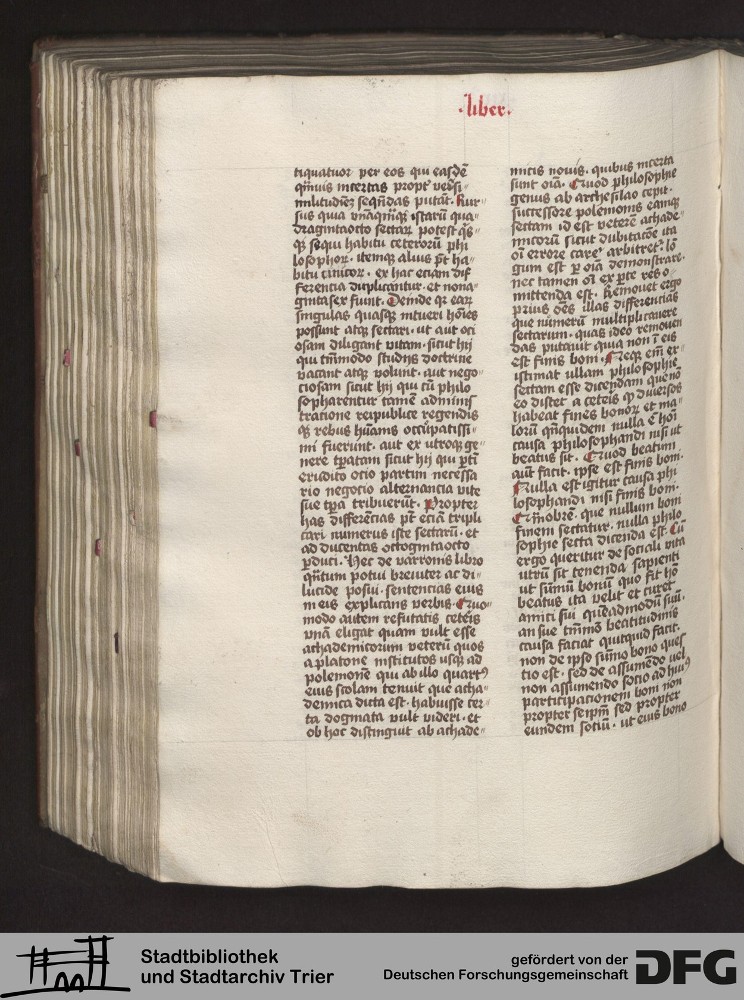 ·liber·
tiquatuor per eos qui easdē
qm̄uis incertas propt̕ verisi-
militudinē seqn̄das putāt. Rur-
sus quia vnāquāqꝫ istarū qua-
dragintaocto sectaꝝ potest q̕s-
qꝫ sequi habitu ceterorū phi
losophoꝝ. itemqꝫ alius p̄t ha-
bitu cinicoꝝ. ex hac eciam dif
ferencia duplicantur. et nona-
gintasex fiunt. Deinde qꝫ eaꝝ
singulas quasqꝫ intueri hoīes
possunt atqꝫ sectari. ut aut oci
osam diligant vitam. sicut hij
qui tm̄modo studijs doctrine
vacant atqꝫ volunt. aut nego-
ciosam sicut hij qui cū philo
sopharentur tamē adminis
tratione reipublice regendis
qꝫ rebus hūanis occupatissi-
mi fuerunt. aut ex utroqꝫ ge-
nere tp̄atam sicut hij qui p̄ti
erudito ocio partim necessa
rio negotio alternancia vite
sue tp̄a tribuerūt. Propter
has differēcias p̄t eciā tripli
cari numerus iste sectarū. et
ad ducentas octogintaocto
ꝑduci. Hec de varronis libro
qn̄tum potui breuiter ac di-
lucide posui. sentencias eius
meis explicans verbis. Quo-
modo autem refutatis ceteris
vnā eligat quam vult esse
achademicorum veterū quos
a platone institutos usqꝫ ad
polemonē qui ab illo quartꝰ
eius scolam tenuit que acha-
demica dicta est. habuisse cer-
ta dogmata vult videri. et
ob hoc distinguit ab achade-
micis nouis. quibus incerta
sunt oīa. Quod philosophie
genus ab archesilao cepit.
successore polemonis eamqꝫ
sectam id est veterē achade-
micorū sicut dubitacōe ita
oī errore care̕ arbitret̕. lō
gum est ꝑ oīa demonstrare.
nec tamen oī ex ꝑte res o-
mittenda est. Remouet ergo
prius oēs illas differencias
que numerū multiplicauere
sectarum. quas ideo remouen
das putauit quia non ī eis
est finis boni. Neqꝫ em̄ ex-
istimat ullam philosophie
sectam esse dicendam que nō
eo distet a ceteris qꝫ diuersos
habeat fines bonoꝝ et ma-
lorū qn̄quidem nulla ē hoī
causa philosophandi nisi ut
beatus sit. Quod beatum
aut̄ facit. ipse est finis boni.
Nulla est igitur causa phi
losophandi nisi finis boni.
Qm̄obrē. que nullum boni
finem sectatur. nulla philo
sophie secta dicenda est. Cū
ergo queritur de sociali vita
utrū sit tenenda sapienti
ut sūmū bonū quo fit hō
beatus ita velit et curet
amici sui queadmodū suū.
an sue tm̄mō beatitudinis
causa faciat quicquid facit.
non de ipso sūmo bono ques
tio est. sed de assumēdo uel
non assumendo socio ad huiꝰ
participacionem boni non
propter seipm̄ sed propter
eundem sociū. ut eius bono
Stadtbibliothek
und Stadtarchiv Trier
gefördert von der
Deutschen Forschungsgemeinschaft
DFG